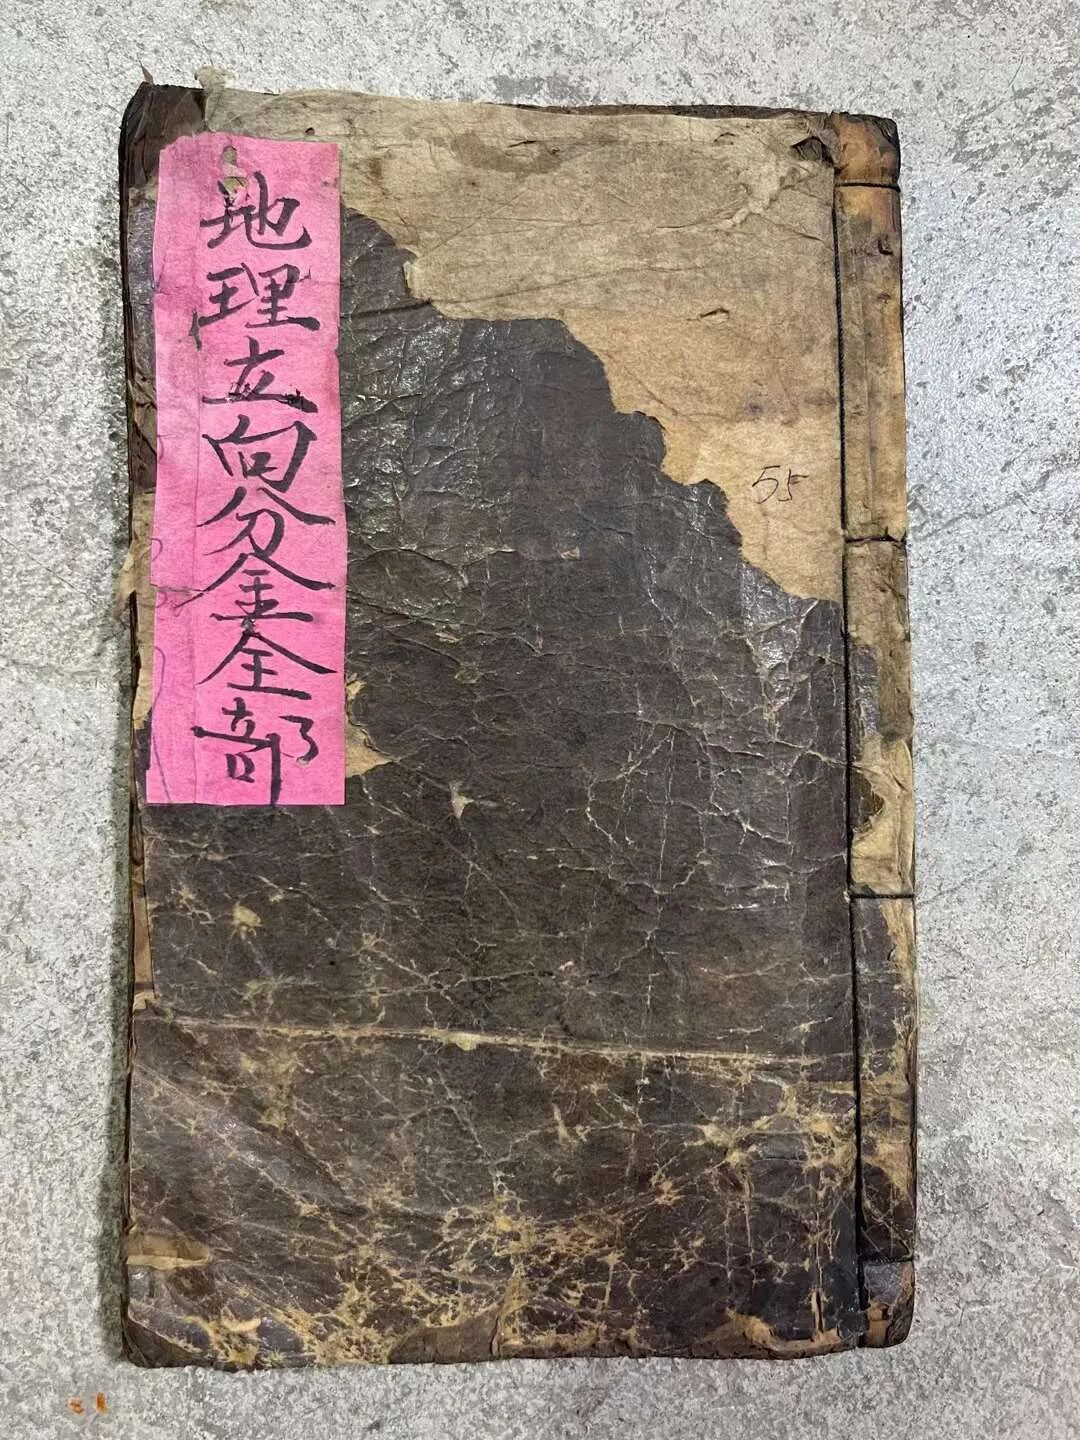 地理立向分金全部
55